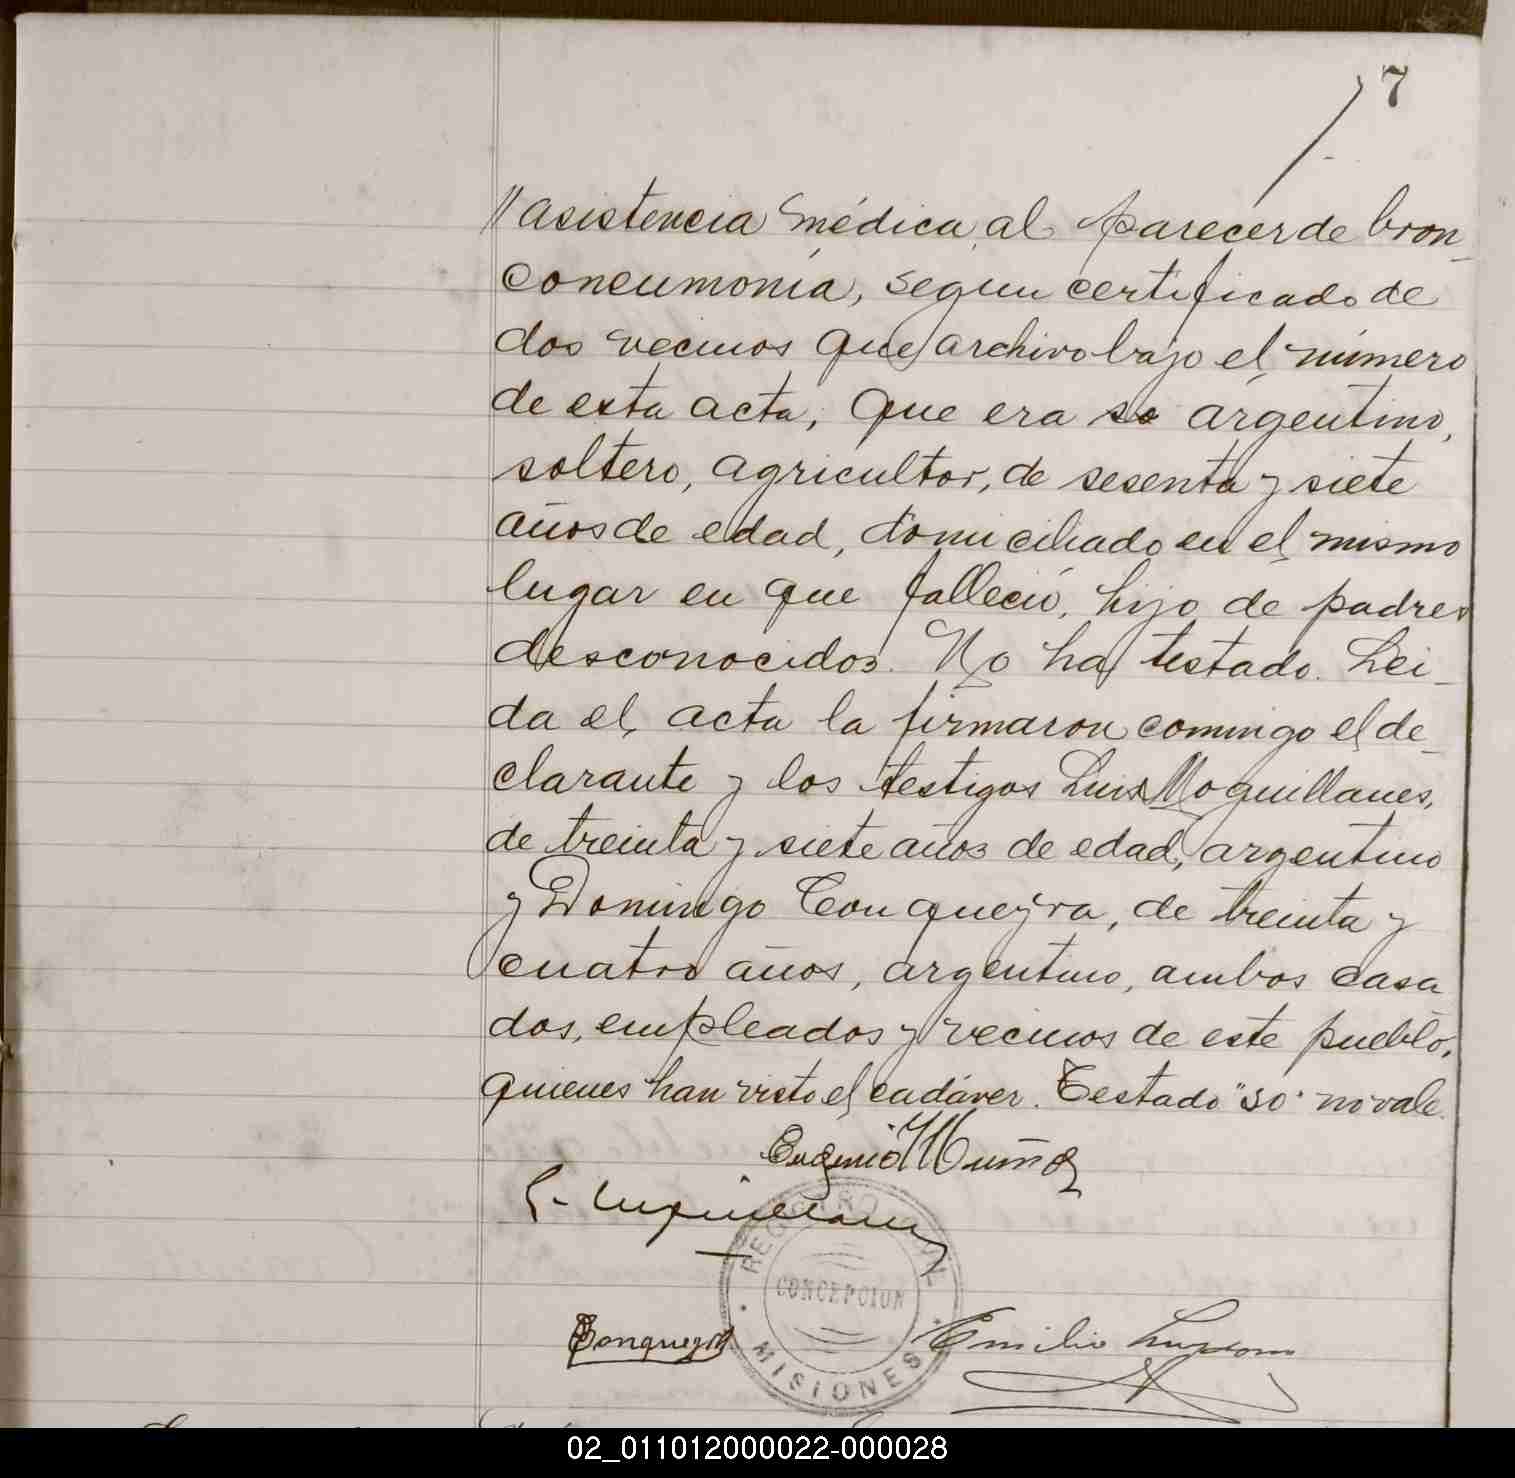 7
// asistencia médica, al parecer de bron-
coneumonía, segun certificado de
dos vecinos que archivo bajo el número
de esta acta; que era so argentino,
soltero, agricultor, de sesenta y siete
años de edad, domiciliado en el mismo
lugar en que falleció, hijo de padres
desconocidos. No ha testado. Lei-
da el acta la firmaron conmigo el de-
clarante y los testigos Luis Moquillanes,
de treinta y siete años de edad, argentino
y Domingo Conqueyra, de treinta y
cuatro años, argentino, ambos casa
dos, empleados y vecinos de este pueblo,
quienes han visto el cadáver. Testado "so" no vale.
Eugenio Muñoz
REGISTRO CIVIL
CONCEPCION
MISIONES
Emilio
02_011012000022-000028